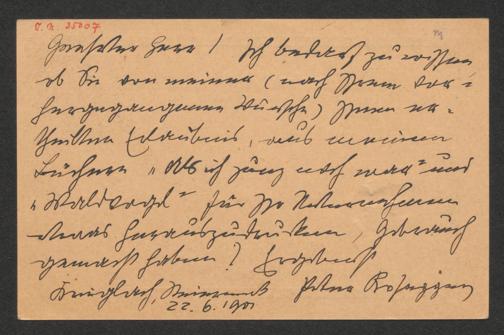 I. N. 25007
Geehrter Herr! Ich bedarf zu wissen
ob Sie von meiner (nach Ihrem vor=
hergegangenen Wunsche) Ihnen er=
theilten Erlaubnis, aus meinen
Büchern „Als ich jung noch war" und
„Waldvogel" für Ihr Unternehmen
etwas herauszudrucken, Gebrauch
gemacht haben? Ergebenst
Krieglach, Steiermark Peter Rosegger
22.6.1901